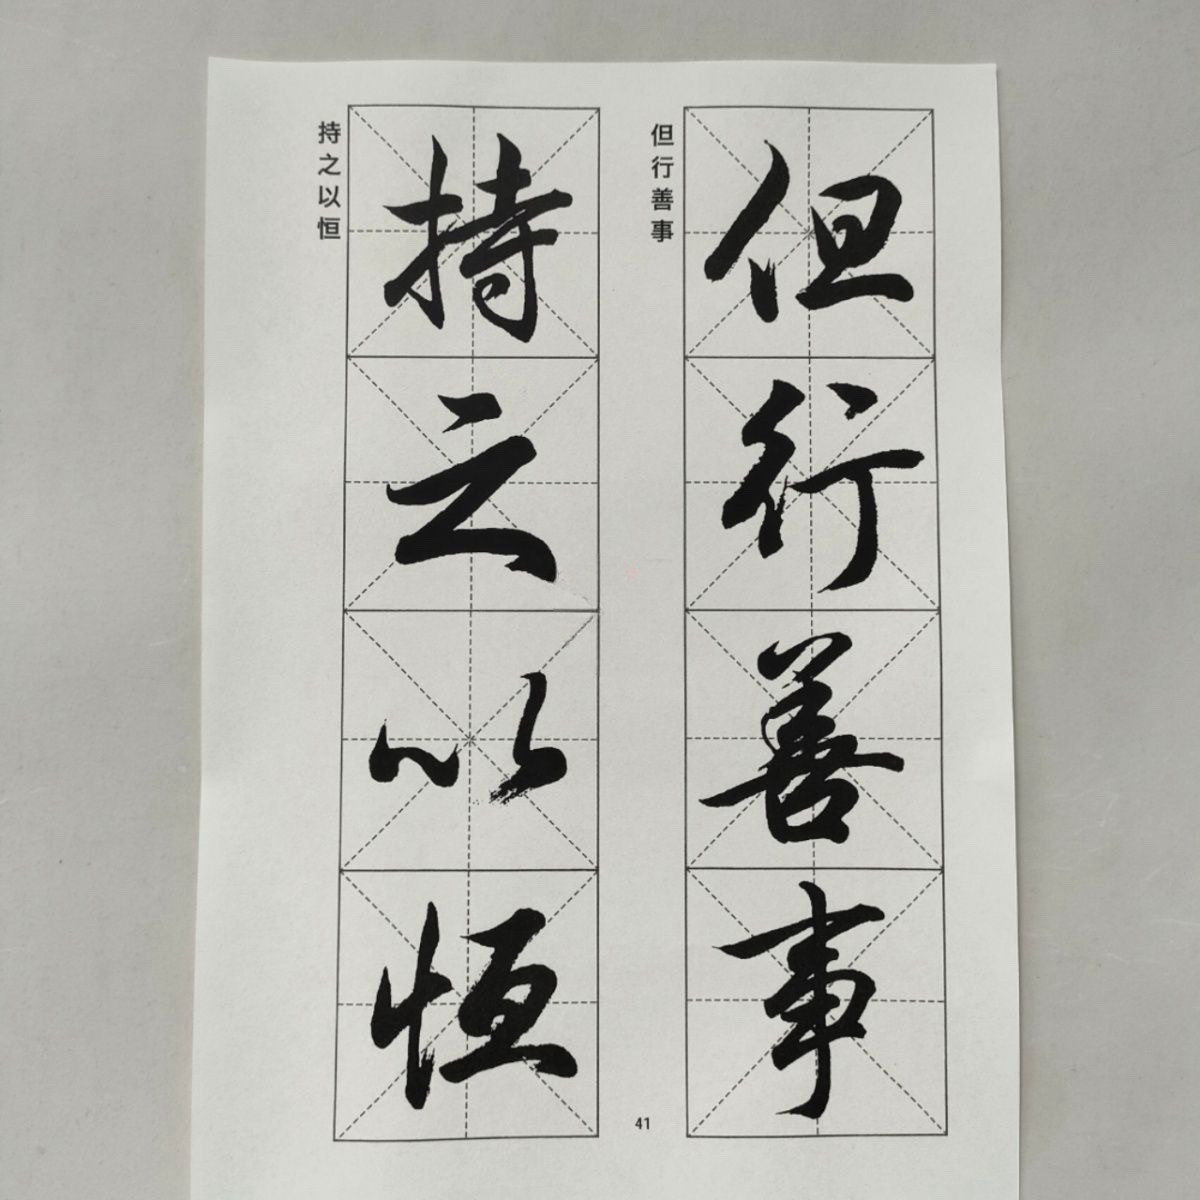 但行善事
但行善事
持之以恒
持之以恒
41